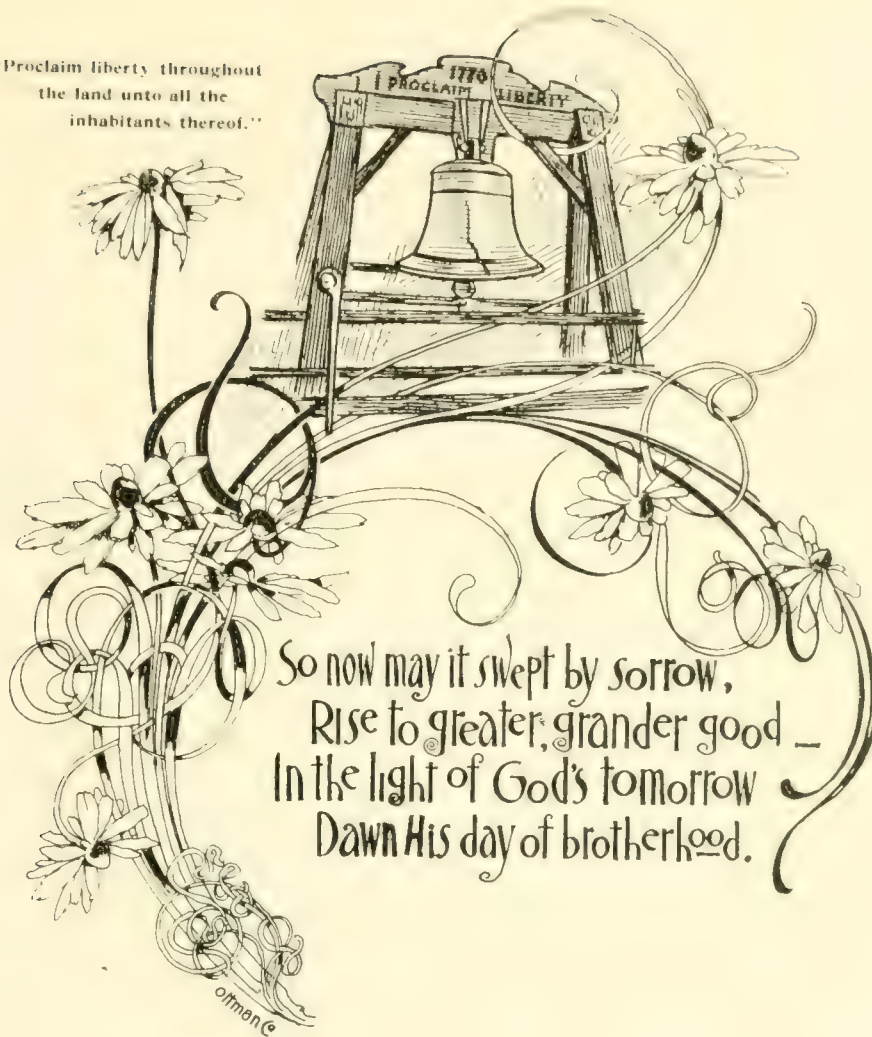 Proclaim liberty throughout
the land unto all the
inhabitants thereof."
1776
I PROCLAIM LIBERTY
So now may it swept by sorrow,
Rise to greater, grander good —
In the light of God's tomorrow
Dawn His day of brotherhood.
Ottman Co